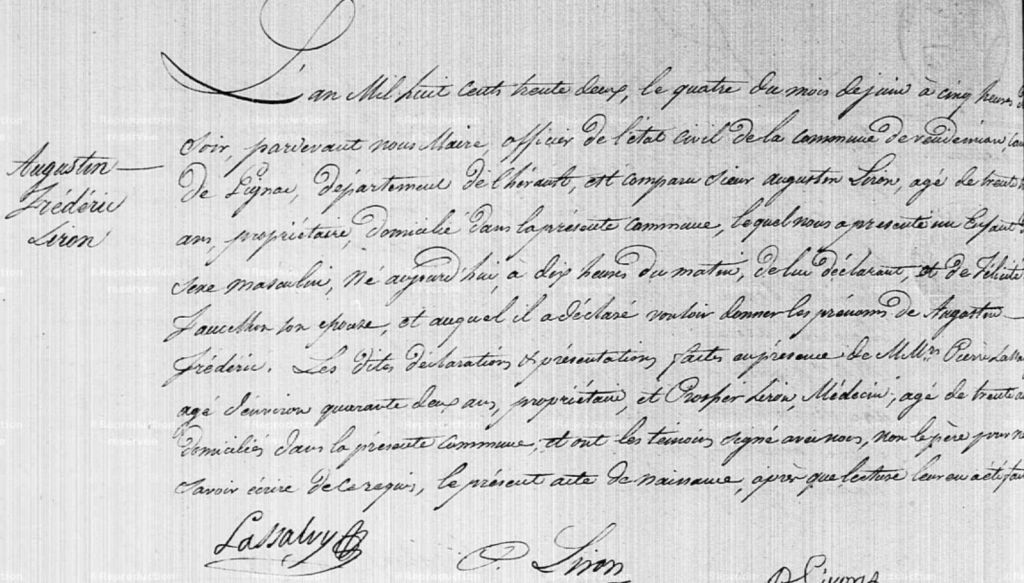 L'an Mil huit cents trente deux, le quatre du mois de juin à cinq heures
Soir, pardevant nous Maire, officier de l'état civil de la commune de vendémian,
Augustin
Frédéric
Liron
De Gignac, département de l'hérault, est comparu Sieur augustin Liron, agé de trente
ans, propriétaire, domicilié dans la présente commune, lequel nous a presenté un Enfant
Sexe masculin, Né aujourd'hui, à dix heures du matin, de lui déclarant, et de Félicité
son epouse, et auquel il a déclaré vouloir donner les prénoms de Augustin
frédéric. Les dites déclarations & présentations faites en présence de M.Mrs Pierre
agé d'environ quarante deux ans, propriétaire, et Prosper Liron, Médecin, agé de trente
domiciliés dans la présente commune, et ont les temoins signé avec nous, non le père pour
Savoir écrire de ce requis, le présent acte de naissance, après que lecture leur en a été
Lassalvy
P. Liron